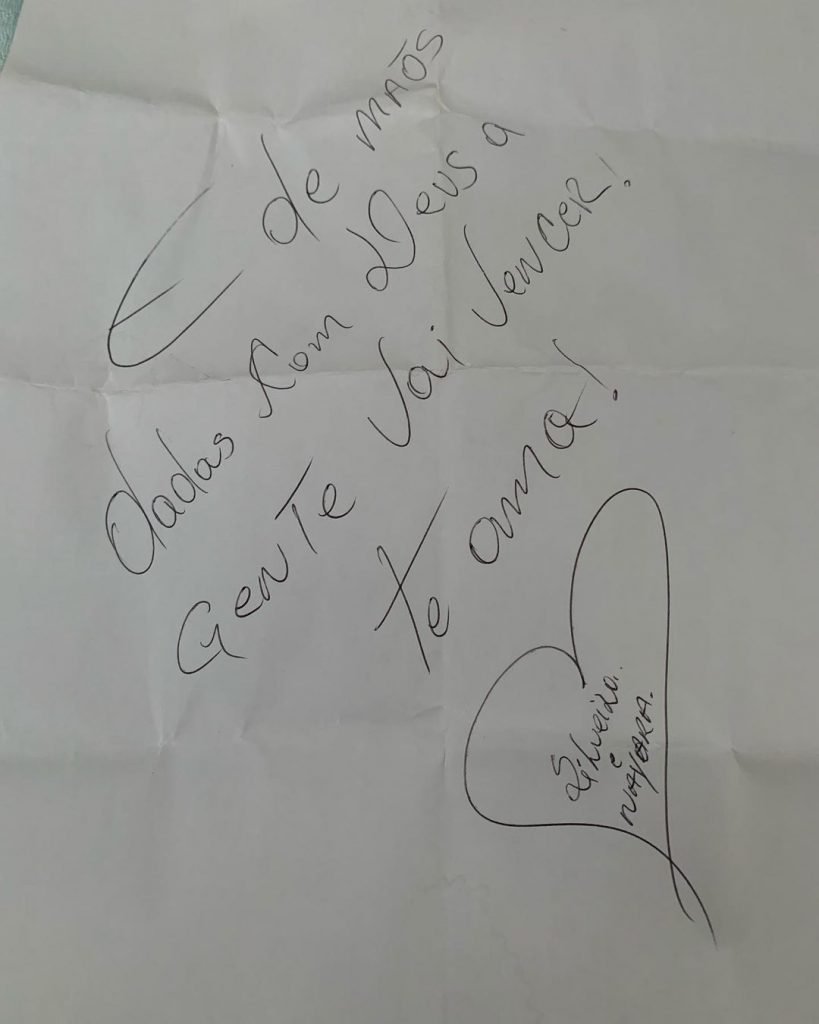 E de mãos
dadas com Deus a
Gente vai vencer!
te ama!
e
NAYARA.